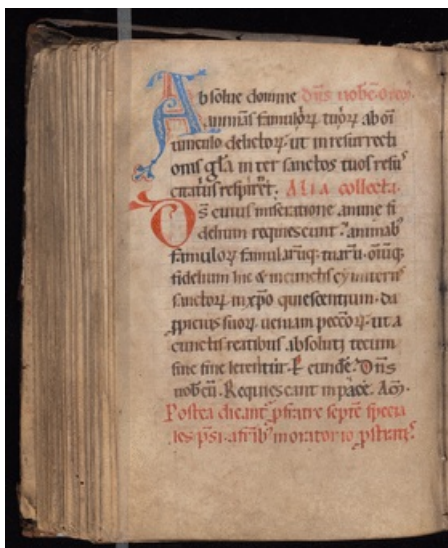 Absolue domine dn̄s uobc̄. orem̄.
animas famulorꝝ tuorꝝ ab om̄i
uinculo delictorꝝ. ut in resurrecti
onis gl̄a inter sanctos tuos resus
citatus respiret. Alia collecta.
Ds̄ cuius miseratione anime fi
delium requiescunt. animab;
famulorꝝ famularūq; tuarū. om̄iūq;
fidelium hic &
sanctorꝝ in xp̄o quiescentium. da
ꝓpicius suorꝝ ueniam pecc̄orꝝ. ut a
cunctis reatibus absoluti tecum
sine fine letentur. P eundē. Dn̄s
uobcū. Requiescant in pace. Am̄.
Postea dicant' ꝓ fratre septē specia
les ps̄i. a frīb; in oratorio ꝓstratis.